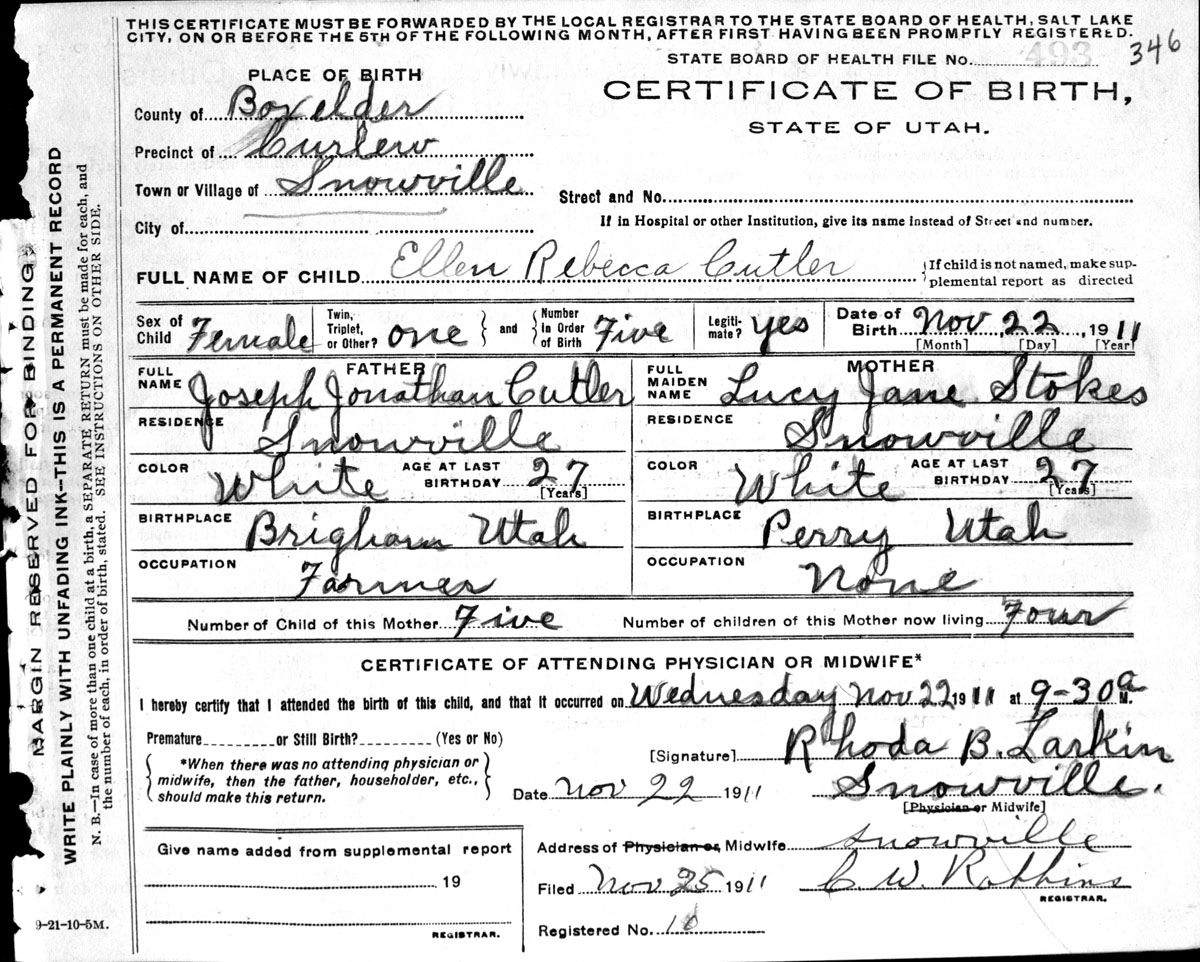 THIS CERTIFICATE MUST BE FORWARDED BY THE LOCAL REGISTRAR TO THE STATE BOARD OF HEALTH, SALT LAKE
CITY, ON OR BEFORE THE 5TH OF THE FOLLOWING MONTH, AFTER FIRST HAVING BEEN PROMPTLY REGISTERED.
346
STATE BOARD OF HEALTH FILE No. 493
PLACE OF BIRTH
CERTIFICATE OF BIRTH,
STATE OF UTAH.
County of Boxelder
Precinct of Curlew
Town or Village of Snowville
Street and No.
If in Hospital or other Institution, give its name instead of Street and number.
City of
FULL NAME OF CHILD Ellen Rebecca Cutler
{If child is not named, make sup-
plemental report as directed
Sex of Child Female
Twin, Triplet, or Other? one } and { Number in Order of Birth Five
Legiti-mate? yes
Date of Birth Nov 22, 1911
[Month] [Day] [Year]
FATHER
FULL NAME Joseph Jonathan Cutler
RESIDENCE Snowville
COLOR White AGE AT LAST BIRTHDAY 27
[Years]
BIRTHPLACE Brigham Utah
OCCUPATION Farmer
MOTHER
FULL MAIDEN NAME Lucy Jane Stokes
RESIDENCE Snowville
COLOR White AGE AT LAST BIRTHDAY 27
[Years]
BIRTHPLACE Perry Utah
OCCUPATION None
Number of Child of this Mother Five Number of children of this Mother now living Four
CERTIFICATE OF ATTENDING PHYSICIAN OR MIDWIFE*
I hereby certify that I attended the birth of this child, and that it occurred on Wednesday Nov 22 1911 at 9-30 a M.
Premature or Still Birth? (Yes or No)
*When there was no attending physician or
midwife, then the father, householder, etc.,
should make this return.
[Signature] Rhoda B. Larkin
Date Nov 22 1911 Snowville.
[Physician or Midwife]
Give name added from supplemental report
19
REGISTRAR.
Address of Physician or, Midwife Snowville
Filed Nov 25 1911 C. W. Robbins
REGISTRAR.
Registered No. 10
9-21-10-5M.
MARGIN RESERVED FOR BINDING
WRITE PLAINLY WITH UNFADING INK—THIS IS A PERMANENT RECORD
N. B.—In case of more than one child at a birth, a SEPARATE RETURN must be made for each, and
the number of each, in order of birth, stated. SEE INSTRUCTIONS ON OTHER SIDE.